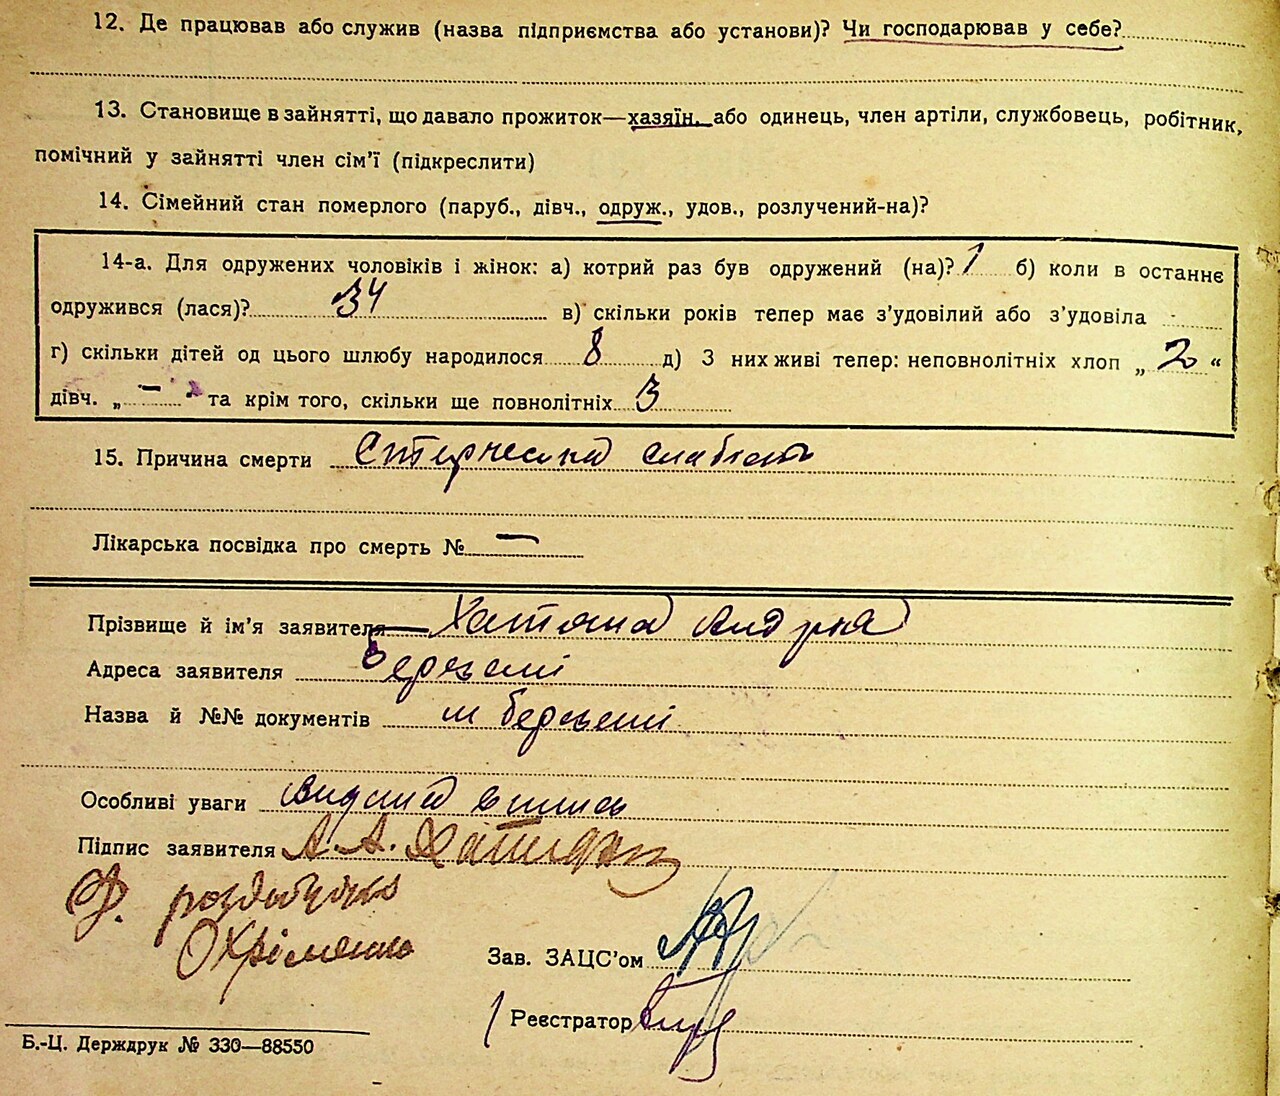 12. Де працював або служив (назва підприємства або установи)? Чи господарював у себе?
13. Становище в зайнятті, що давало прожиток—хазяїн, або одинець, член артіли, службовець, робітник,
помічний у зайнятті член сім'ї (підкреслити)
14. Сімейний стан померлого (паруб., дівч., одруж., удов., розлучений-на)?
14-а. Для одружених чоловіків і жінок: а) котрий раз був одружений (на)? 1 б) коли в останнє
одружився (лася)? 34 в) скільки років тепер має з'удовілий або з'удовіла
г) скільки дітей од цього шлюбу народилося 8 д) З них живі тепер: неповнолітніх хлоп „ 2 “
дівч. „ — “ та крім того, скільки ще повнолітніх 3
15. Причина смерти слабість
Лікарська посвідка про смерть № —
Прізвище й ім'я заявителя
Адреса заявителя
Назва й №№ документів
Особливі уваги
Підпис заявителя А. А.
Охріменко
Зав. ЗАЦС'ом
Реєстратор
Б.-Ц. Держдрук № 330—88550